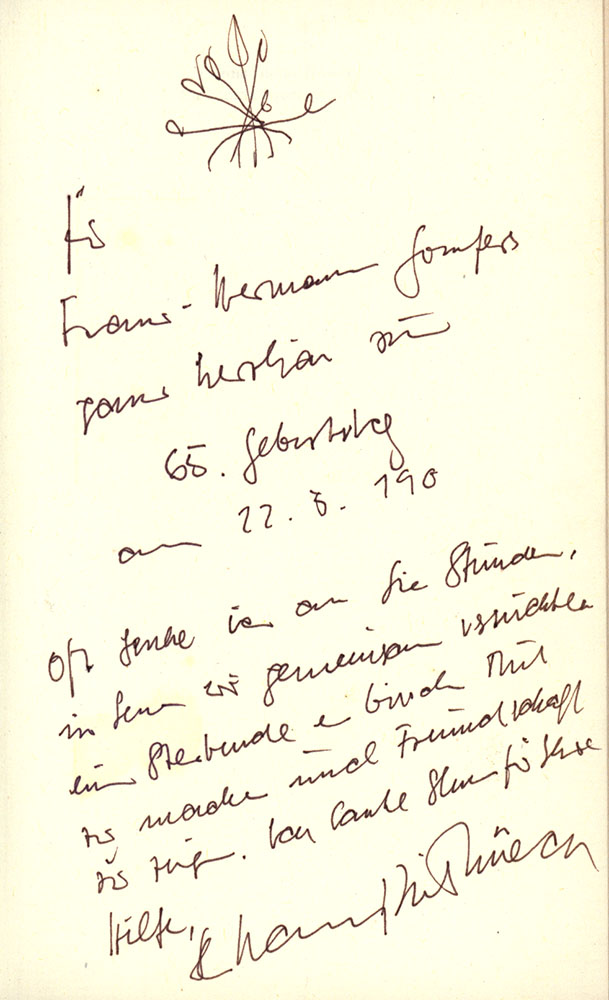 Für
Franz-Hermann Gompers
ganz herzlich zum
65. Geburtstag
am 22. 8. 190
Oft denke ich an die Stunden,
in denen wir gemeinsam versuchten
einem Sterbenden Mut
zu machen und Freundschaft
zu zeigen. Ich danke Ihnen für diese
Hilfe,